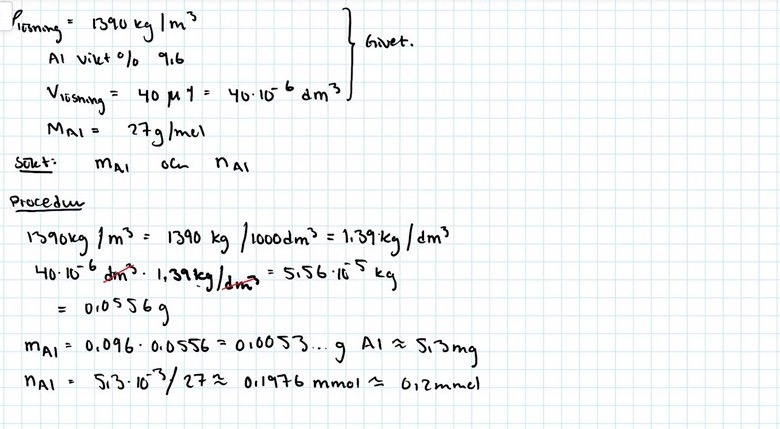 ρlösning = 1390 kg/m³
Al vikt% 9,6
Vlösning = 40 μl = 40·10⁻⁶ dm³
} Givet.
MAl = 27g/mol
Sökt: mAl och nAl
Procedur
1390kg/m³ = 1390 kg/1000dm³ = 1,39 kg/dm³
40·10⁻⁶ dm³ · 1,39kg/dm³ = 5,56·10⁻⁵ kg
= 0,0556 g
mAl = 0,096 · 0,0556 = 0,0053... g Al ≈ 5,3mg
nAl = 5,3·10⁻³/27 ≈ 0,1976 mmol ≈ 0,2mmol